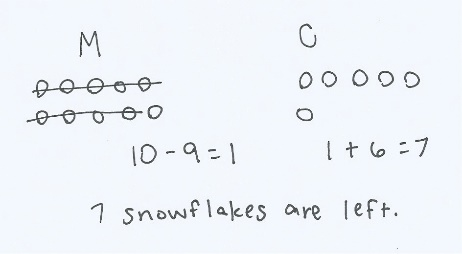 M C
10 - 9 = 1 1 + 6 = 7
7 snowflakes are left.